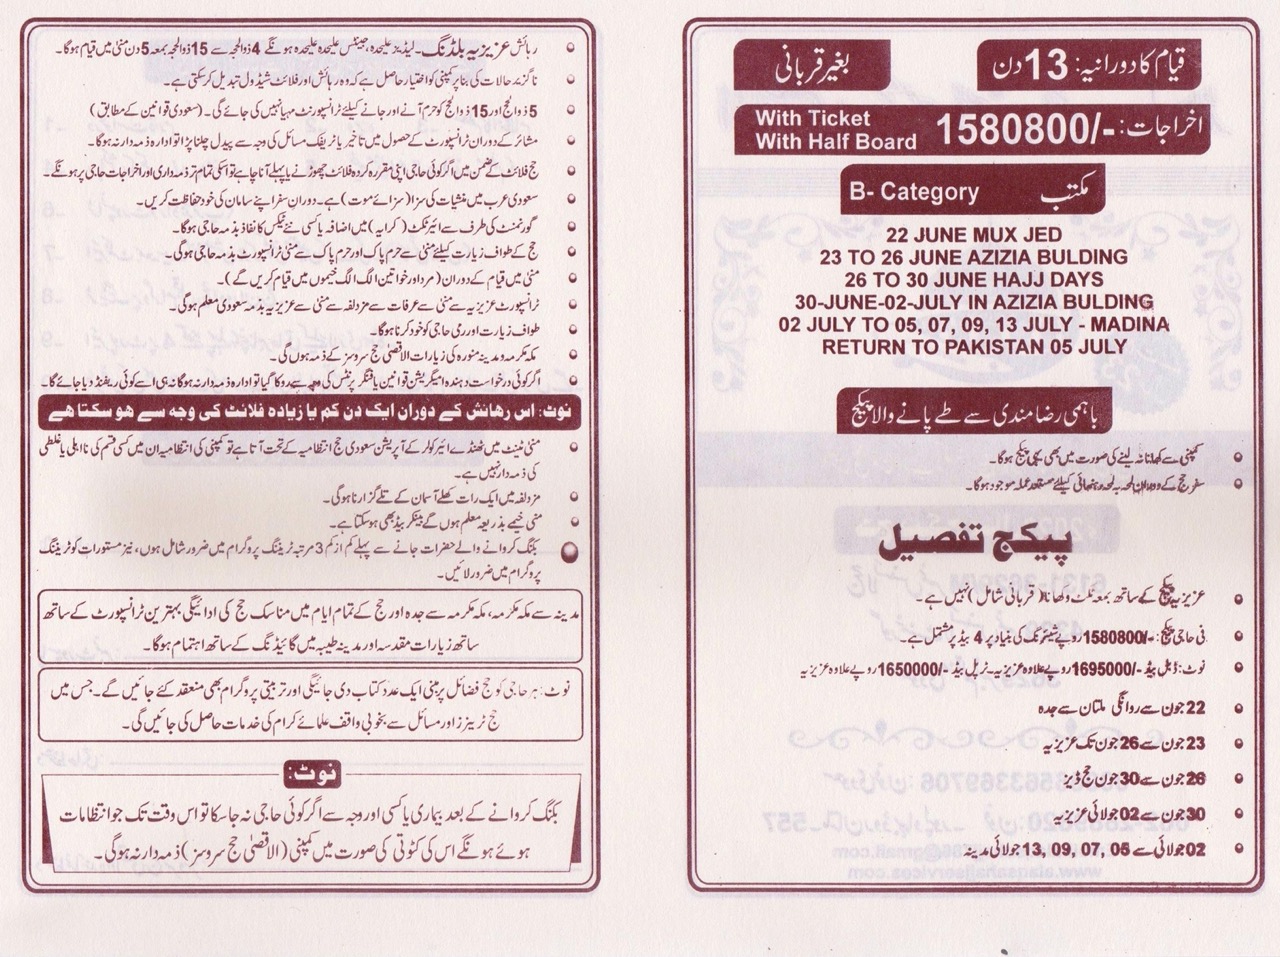 قیام کا دورانیہ: 13 دن
بغیر قربانی
اخراجات: 1580800/-
With Ticket
With Half Board
مکتب B- Category
22 JUNE MUX JED
23 TO 26 JUNE AZIZIA BULDING
26 TO 30 JUNE HAJJ DAYS
30-JUNE-02-JULY IN AZIZIA BULDING
02 JULY TO 05, 07, 09, 13 JULY - MADINA
RETURN TO PAKISTAN 05 JULY
باہمی رضامندی سے طے پانے والا پیکج
کمپنی سے کھانا نہ لینے کی صورت میں بھی یہی پیکج ہوگا۔
سفر حج کے دوران لمحہ بہ لمحہ رہنمائی کیلئے مستعد عملہ موجود ہوگا۔
پیکج تفصیل
عزیزیہ پیکج کے ساتھ بمعہ ٹکٹ وکھانا (قربانی شامل) نہیں ہے۔
فی حاجی پیکج: -/1580800 روپے شیئرنگ کی بنیاد پر 4 بیڈ پر مشتمل ہے۔
نوٹ: ڈبل بیڈ -/1695000 روپے علاوہ عزیزیہ ٹرپل بیڈ -/1650000 روپے علاوہ عزیزیہ
22 جون سے روانگی ملتان سے جدہ
23 جون سے 26 جون تک عزیزیہ
26 جون سے 30 جون حج ڈیز
30 جون سے 02 جولائی عزیزیہ
02 جولائی سے 05, 07, 09, 13 جولائی مدینہ
رہائش عزیزیہ بلڈنگ۔ لیڈیز علیحدہ، جینٹس علیحدہ علیحدہ ہونگے 4 ذوالحجہ سے 15 ذوالحجہ بمعہ 5 دن منیٰ میں قیام ہوگا۔
ناگزیر حالات کی بنا پر کمپنی کو اختیار حاصل ہے کہ وہ رہائش اور فلائٹ شیڈول تبدیل کرسکتی ہے۔
5 ذوالحج اور 15 ذوالحج کو حرم آنے اور جانے کیلئے ٹرانسپورٹ مہیا نہیں کی جائے گی۔ (سعودی قوانین کے مطابق)
مشائر کے دوران ٹرانسپورٹ کے حصول میں تاخیر یا ٹریفک مسائل کی وجہ سے پیدل چلنا پڑا تو ادارہ ذمہ دار نہ ہوگا۔
حج فلائٹ کے ضمن میں اگر کوئی حاجی اپنی مقرر کردہ فلائٹ چھوڑنے یا پہلے آنا چاہے تو اسکی تمام تر ذمہ داری اور اخراجات حاجی پر ہونگے۔
سعودی عرب میں منشیات کی سزا (سزائے موت) ہے۔ دوران سفر اپنے سامان کی خود حفاظت کریں۔
گورنمنٹ کی طرف سے ائیر ٹکٹ (کرایہ) میں اضافہ یا کسی نئے ٹیکس کا نفاذ بذمہ حاجی ہوگا۔
حج کے طواف زیارت کیلئے منیٰ سے حرم پاک اور حرم پاک سے منیٰ ٹرانسپورٹ بذمہ حاجی ہوگی۔
منیٰ میں قیام کے دوران (مرد اور خواتین الگ الگ خیموں میں قیام کریں گے)۔
ٹرانسپورٹ عزیزیہ سے منیٰ سے عرفات سے مزدلفہ سے منیٰ سے عزیزیہ بذمہ سعودی معلم ہوگی۔
طواف زیارت اور رمی حاجی کو خود کرنا ہوگا۔
مکہ مکرمہ و مدینہ منورہ کی زیارات الاقصیٰ حج سروسز کے ذمہ ہوں گی۔
اگر کوئی درخواست دہندہ امیگریشن قوانین یا فنگر پرنٹس کی وجہ سے روکا گیا تو ادارہ ذمہ دار نہ ہوگا نہ ہی اسے کوئی ریفنڈ دیا جائے گا۔
نوٹ: اس رہائش کے دوران ایک دن کم یا زیادہ فلائٹ کی وجہ سے ہو سکتا ہے
منیٰ ٹینٹ میں ٹھنڈے ائیر کولر کے آپریشن سعودی حج انتظامیہ کے تحت آتا ہے تو کمپنی کی انتظامیہ ان میں کسی قسم کی نااہلی یا غلطی
کی ذمہ دار نہیں ہے۔
مزدلفہ میں ایک رات کھلے آسمان کے تلے گزارنا ہوگی۔
منیٰ خیمے بذریعہ معلم ہوں گے بینکر بیڈ بھی ہوسکتا ہے۔
بکنگ کروانے والے حضرات جانے سے پہلے کم از کم 3 مرتبہ ٹریننگ پروگرام میں ضرور شامل ہوں، نیز مستورات کو ٹریننگ
پروگرام میں ضرور لائیں۔
مدینہ سے مکہ مکرمہ، مکہ مکرمہ سے جدہ اور حج کے تمام ایام میں مناسک حج کی ادائیگی بہترین ٹرانسپورٹ کے ساتھ
ساتھ زیارات مقدسہ اور مدینہ طیبہ میں گائیڈنگ کے ساتھ اہتمام ہوگا۔
نوٹ: ہر حاجی کو حج فضائل پر مبنی ایک عدد کتاب دی جائیگی اور تربیتی پروگرام بھی منعقد کئے جائیں گے۔ جس میں
حج ٹرینرز اور مسائل سے بخوبی واقف علمائے کرام کی خدمات حاصل کی جائیں گی۔
نوٹ:
بکنگ کروانے کے بعد بیماری یا کسی اور وجہ سے اگر کوئی حاجی نہ جاسکا تو اس وقت تک جو انتظامات
ہوئے ہونگے اس کی کٹوتی کی صورت میں کمپنی (الاقصیٰ حج سروسز) ذمہ دار نہ ہوگی۔